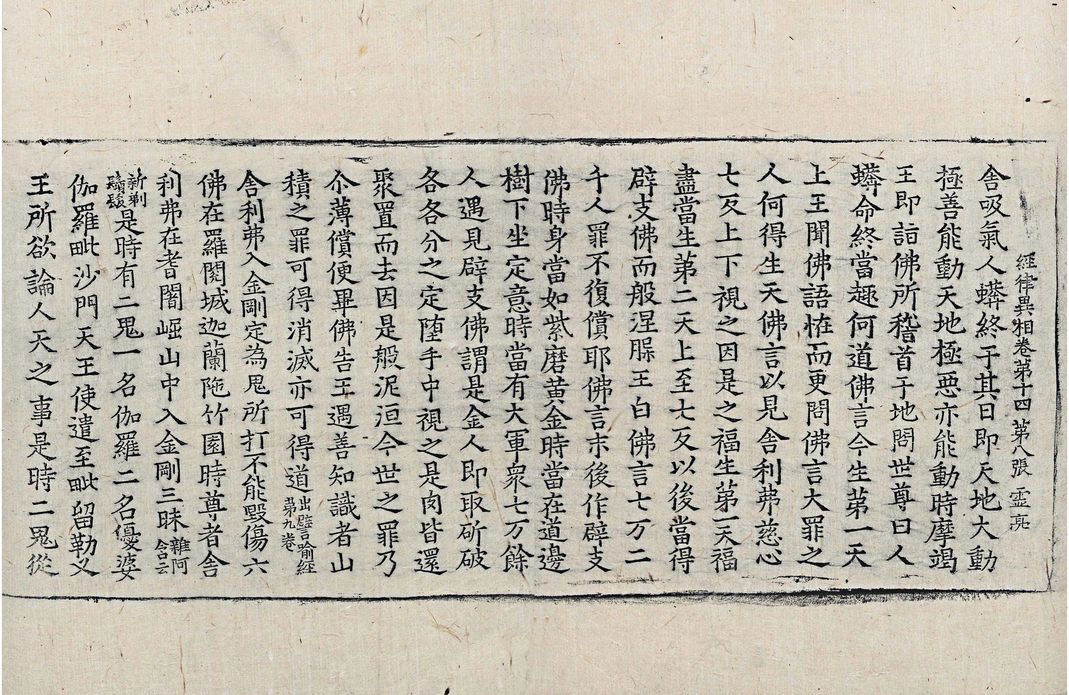 經律異相卷第十四 第八張 霊亮
舎吸氣人蟒終于其日即天地大動
極善能動天地極悪亦能動時摩竭
王即詣佛所稽首于地問世尊曰人
蟒命終當趣何道佛言今生第一天
上王聞佛語恠而更問佛言大罪之
人何得生天佛言以見舍利弗慈心
七反上下視之因是之福生第一天福
盡當生第二天上至七反以後當得
辟支佛而般涅脲王白佛言七万二
千人罪不復償耶佛言末後作辟支
佛時身當如紫磨黄金時當在道邊
樹下坐定意時當有大軍衆七万餘
人遇見辟支佛謂是金人即取斫破
各各分之定堕手中視之是肉皆還
聚置而去因是般泥洹今世之罪乃
尒薄償便畢佛告王遇善知識者山
積之罪可得消滅亦可得道出譬喻經第九卷
舎利弗入金剛定為鬼所打不能毀傷六
佛在羅閱城迦蘭陁竹園時尊者舎
利弗在耆闍崛山中入金剛三昧雜阿含云
新剃鬚髮是時有二鬼一名伽羅二名優婆
伽羅毗沙門天王使遣至毗留勒叉
王所欲論人天之事是時二鬼從